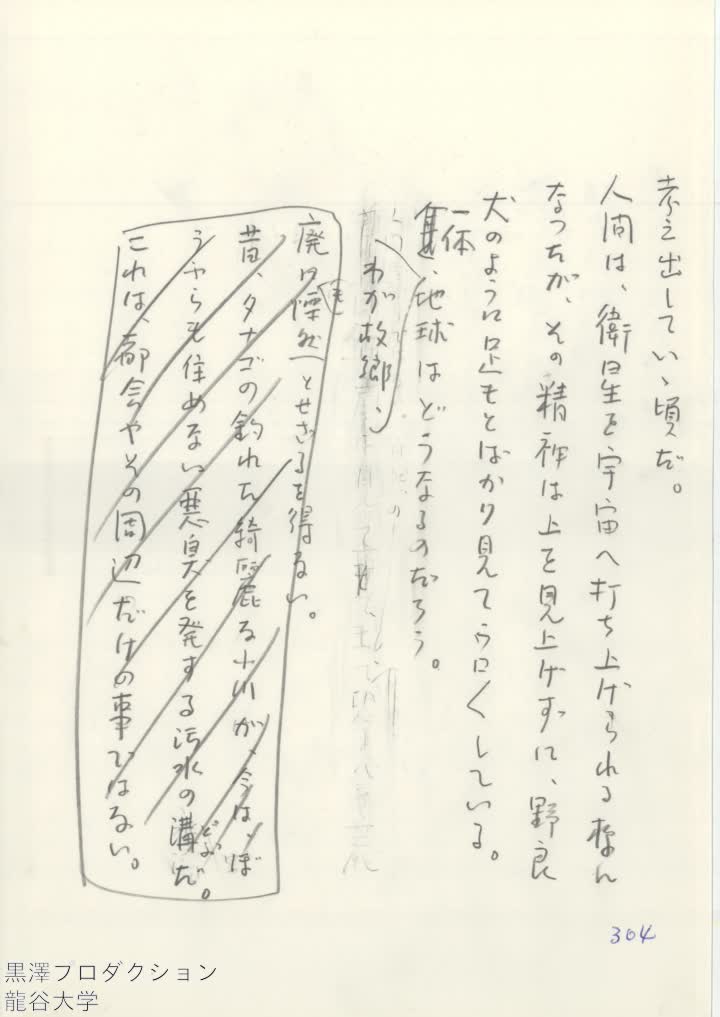 考え出していゝ頃だ。
人間は、衛星を宇宙へ打ち上げられる様に
なったが、その精神は上を見上げずに、野良
犬のように足もとばかり見てうろくしている。
一体
地球はどうなるのだろう。
わが故郷、
廃は慄然とせざるを得ない。
も
昔、タナゴの釣れた綺麗な小川が、今は、ぼ
うふらも住めない悪臭を発する汚水の溝だ。
どぶ
これは、都会やその周辺だけの事ではない。
304
黒澤プロダクション
龍谷大学